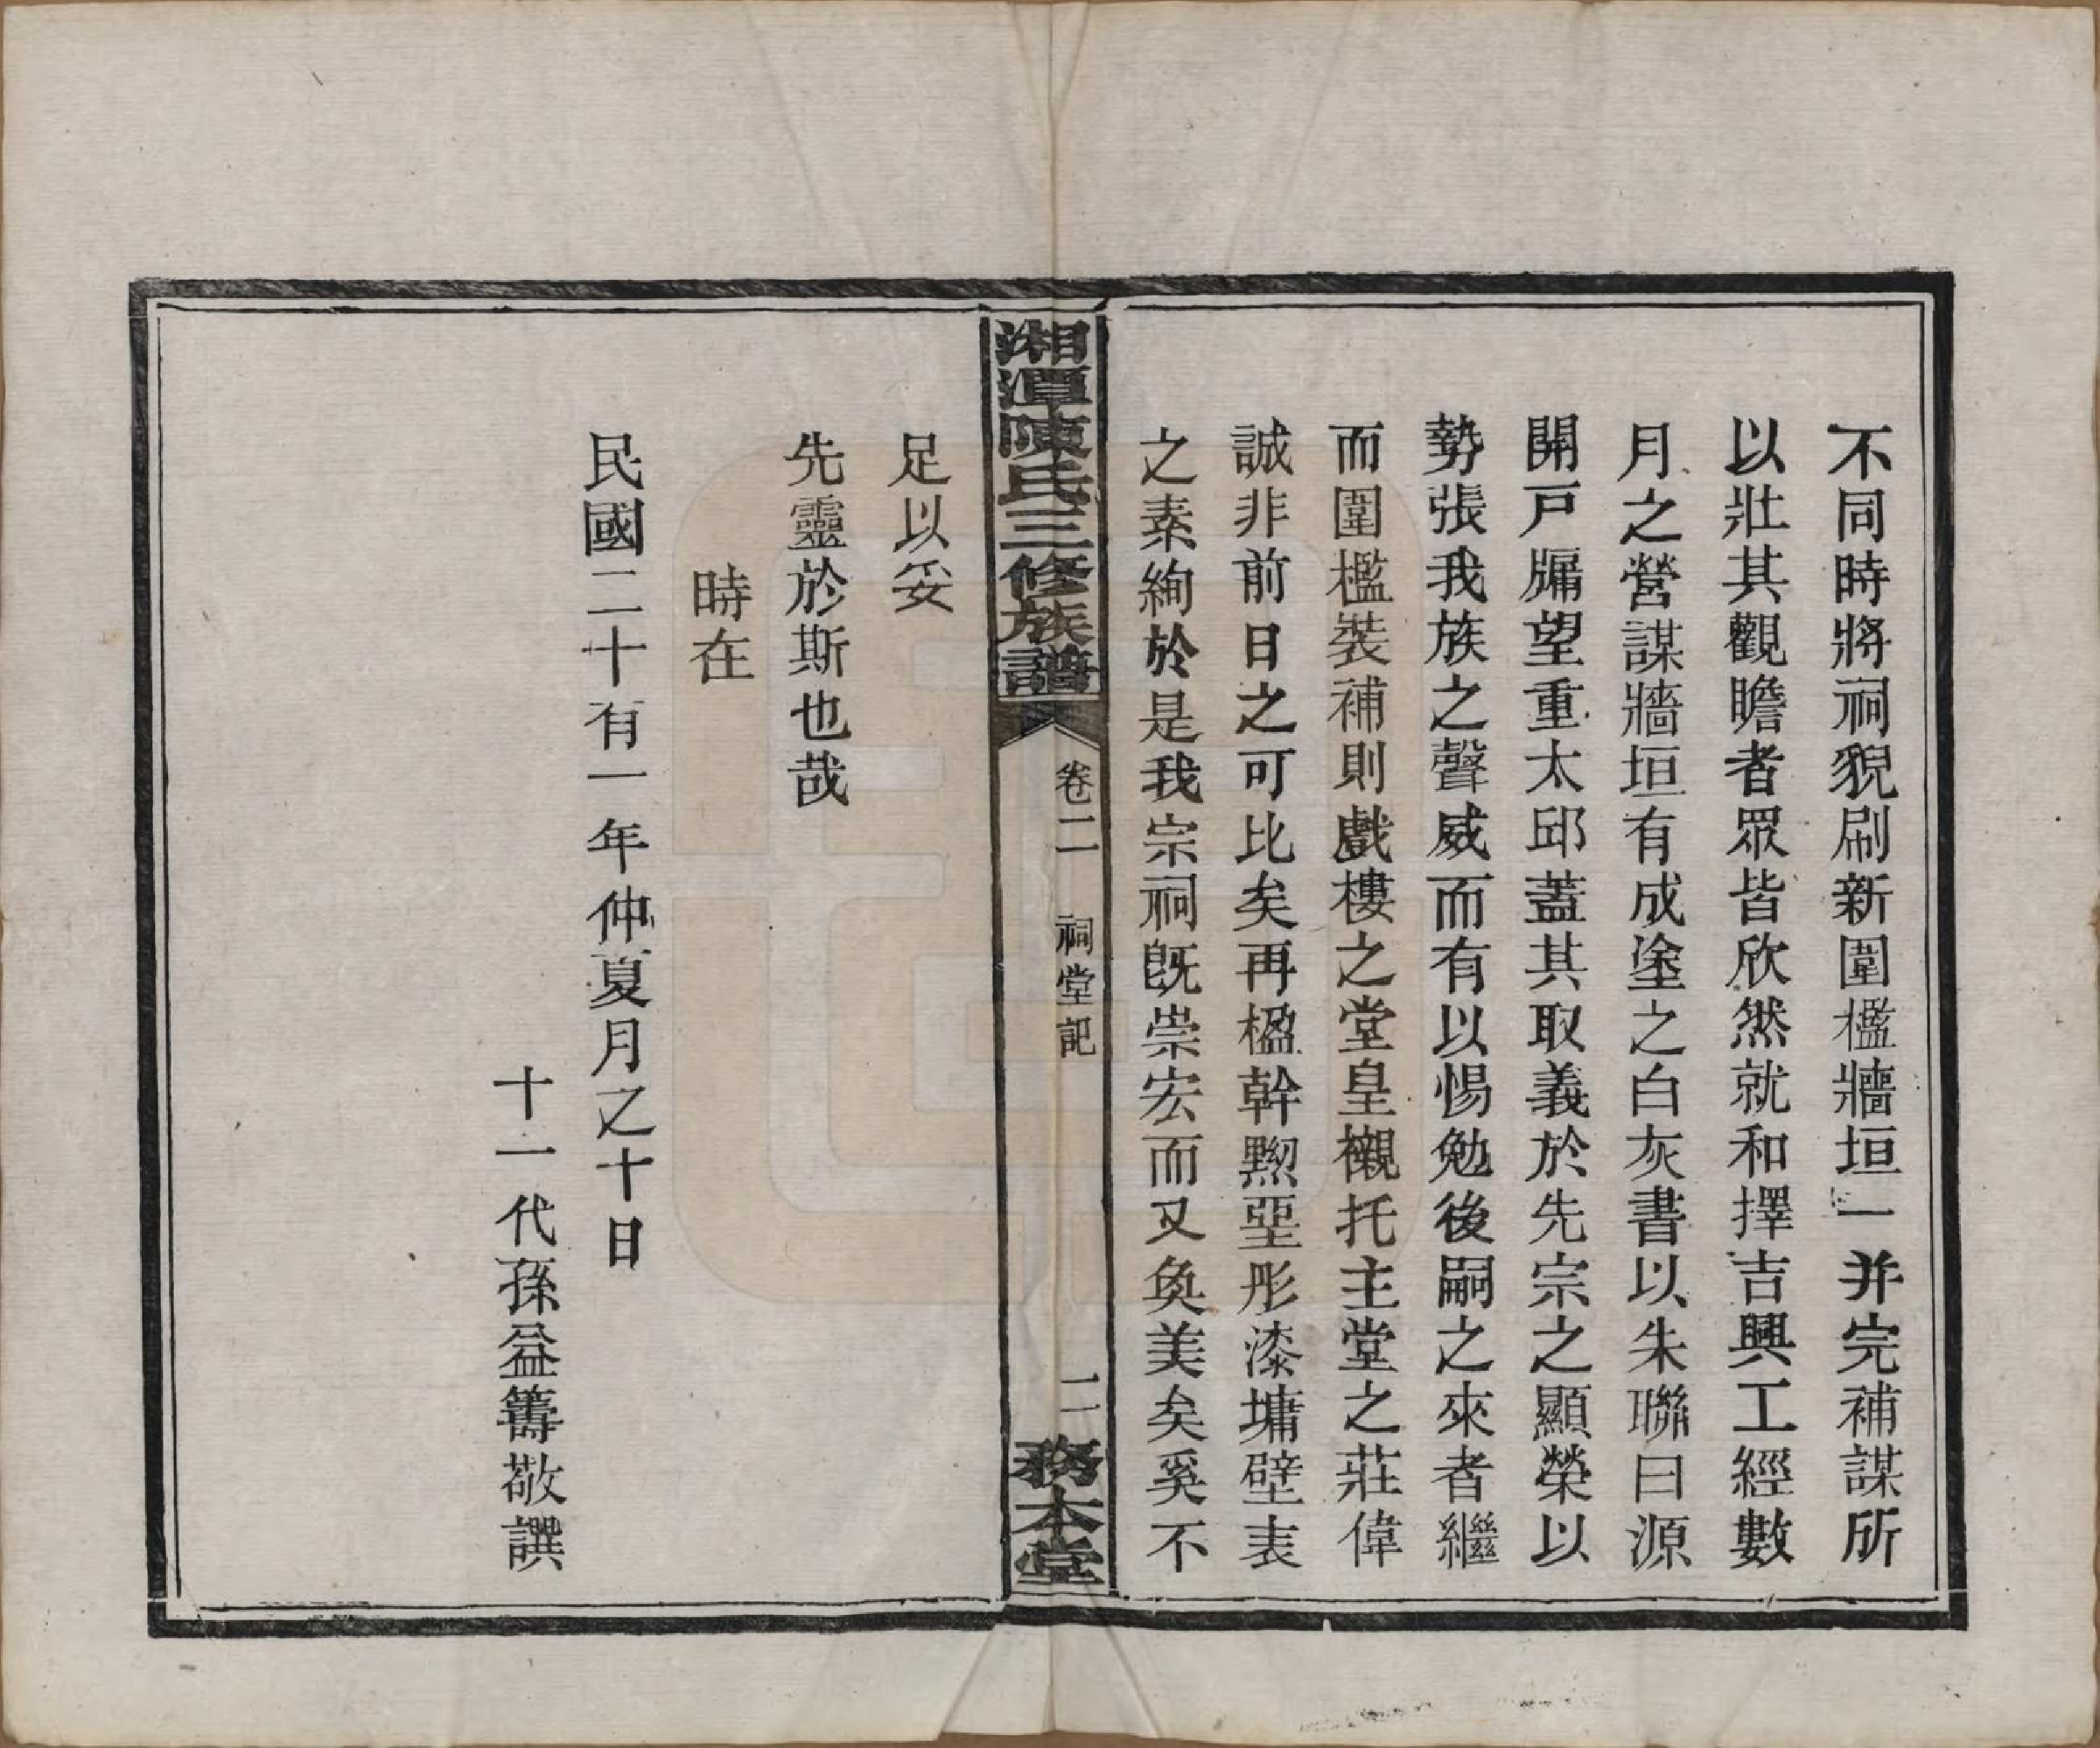 不同時將祠貌刷新圍檻牆垣一并完補謀所
以壯其觀瞻者眾皆欣然就和擇吉興工經數
月之營謀牆垣有成塗之白灰書以朱聯曰源
開戸牖望重太邱蓋其取義於先宗之顯榮以
勢張我族之聲威而有以惕勉後嗣之來者繼
而圍檻裝補則戲樓之堂皇襯托主堂之莊偉
誠非前日之可比矣再楹幹黝堊彤漆墉壁表
之素絢於是我宗祠既崇宏而又奐美矣奚不
湘潭陳氏三修族譜
卷二 祠堂記
二
務本堂
足以妥
先靈於斯也哉
時在
民國二十有一年仲夏月之十日
十一代孫益籌敬譔